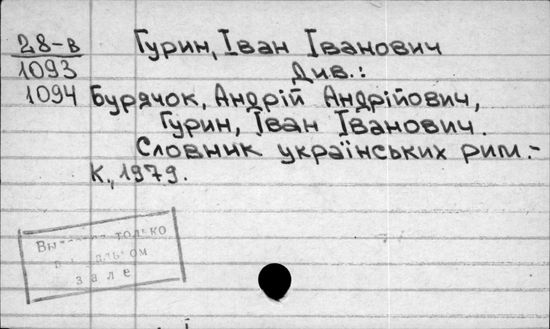 28-в Гурин, Іван Іванович
1093 Див.:
1094 Бурячок, Андрій Андрійович,
Гурин, Іван Іванович.
Словник українських рим.-
К., 1979.
только
зале